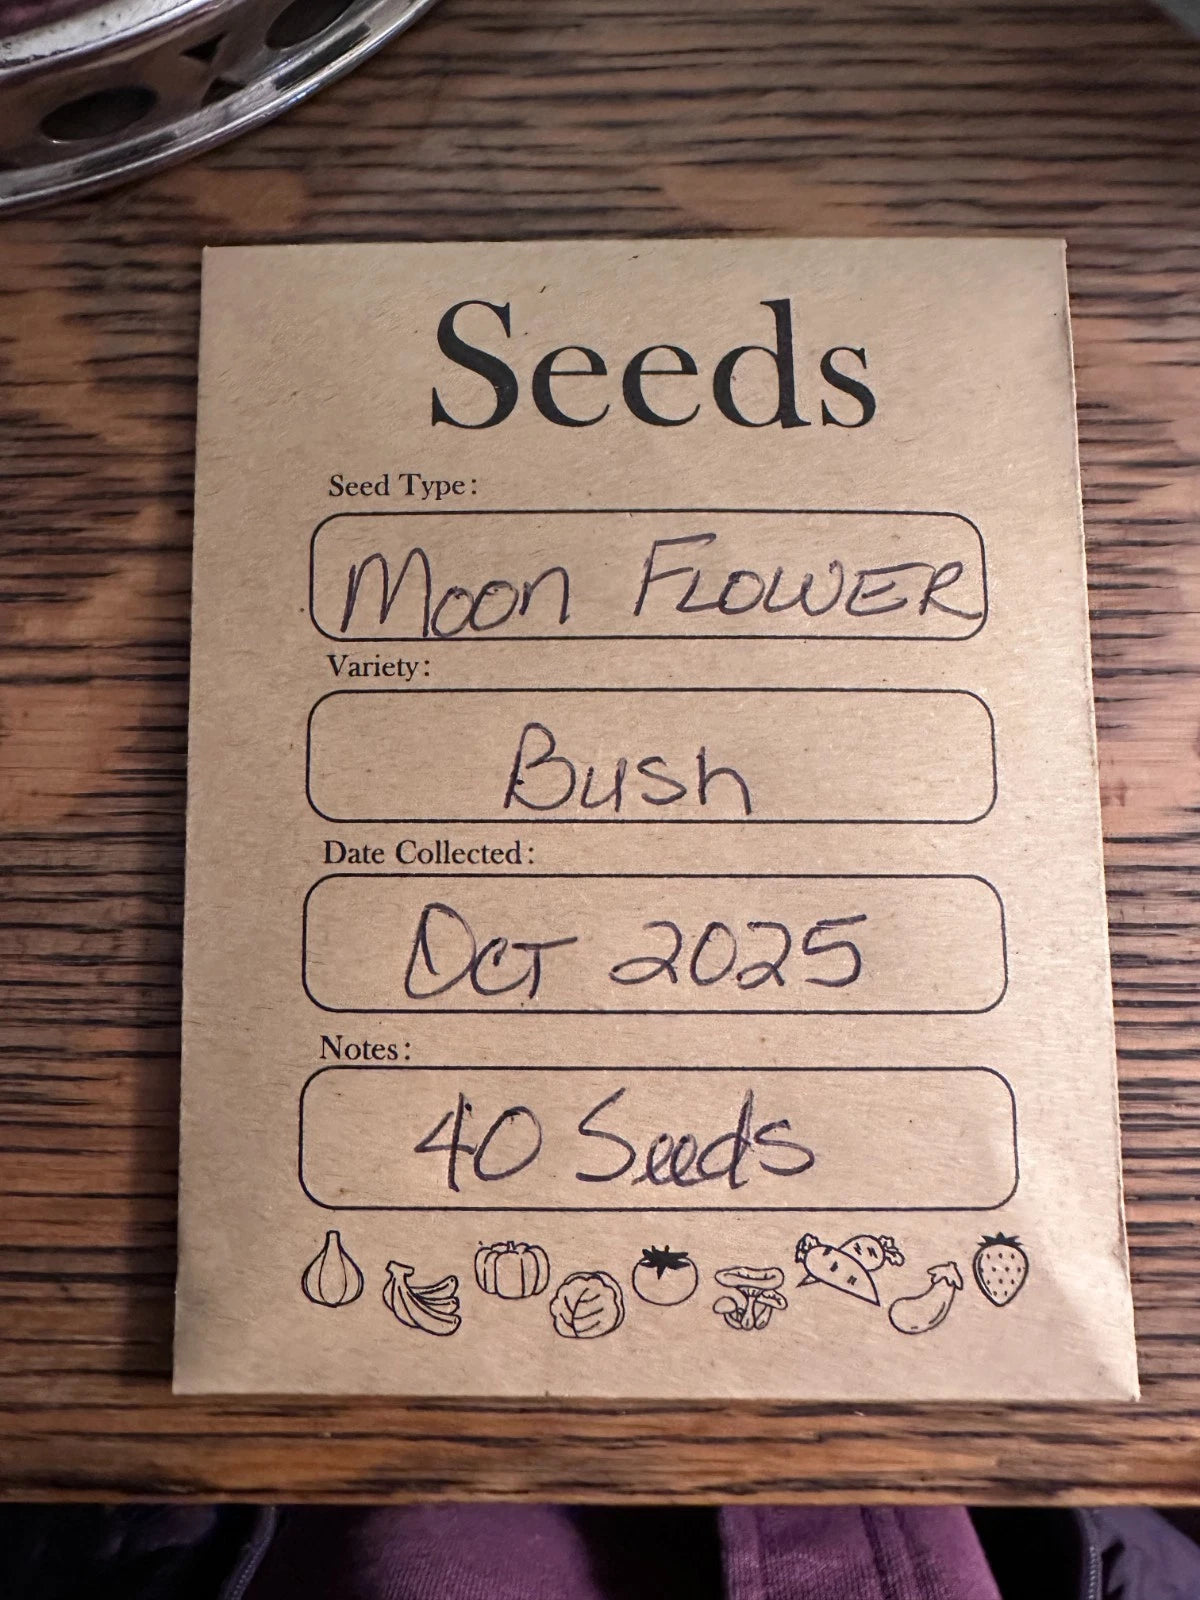 Seeds
Seed Type:
Moon FLOWER
Variety:
Bush
Date Collected:
OCT 2025
Notes:
40 Seeds